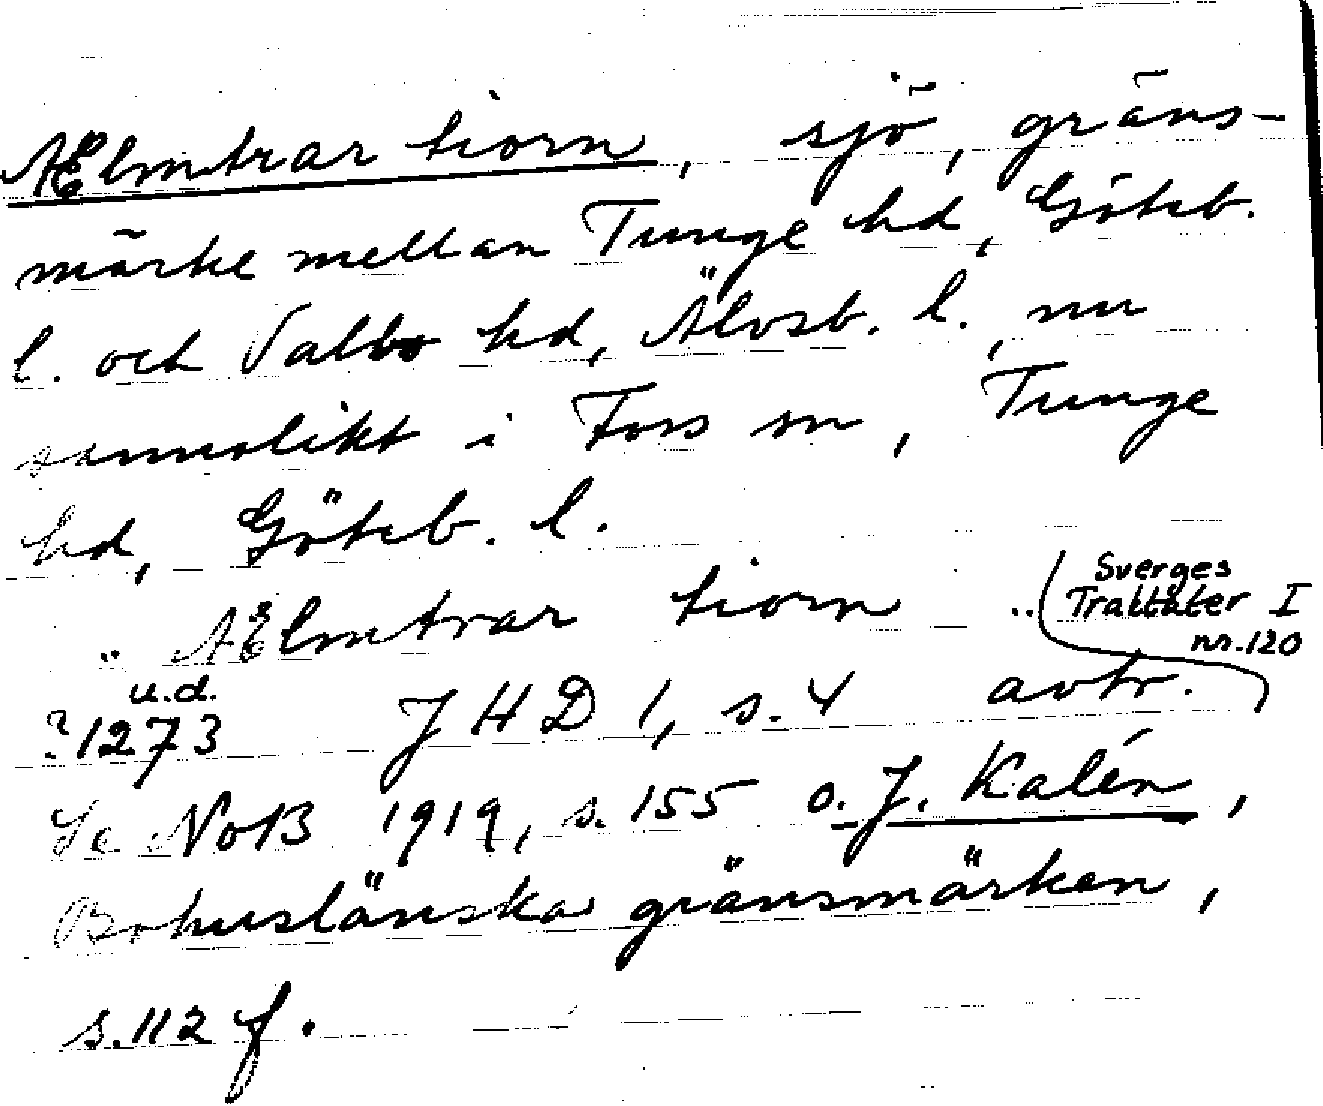 Ælmtrar tiorn, sjö, gräns-
märke mellan Tunge hd, Göteb.
l. och Valbo hd, Älvsb. l., nu
sannolikt i Foss sn, Tunge
hd, Göteb. l.
.. Ælmtrar tiorn ..
(Sverges
Traktater I
nr. 120)
u.d.
?1273 JHD 1, s. 4 avtr.
Se NoB 1919, s. 155 o. J. Kalén,
Bohuslänska gränsmärken,
s. 112 f.